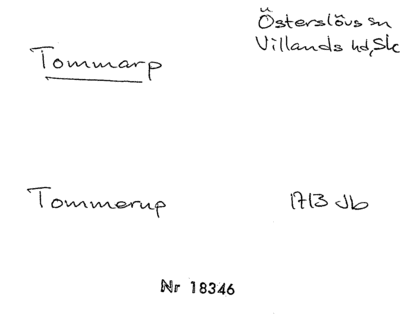 Österslövs sn
Villands hd, Sk
Tommarp
Tommerup 1713 Jb
Nr 18346